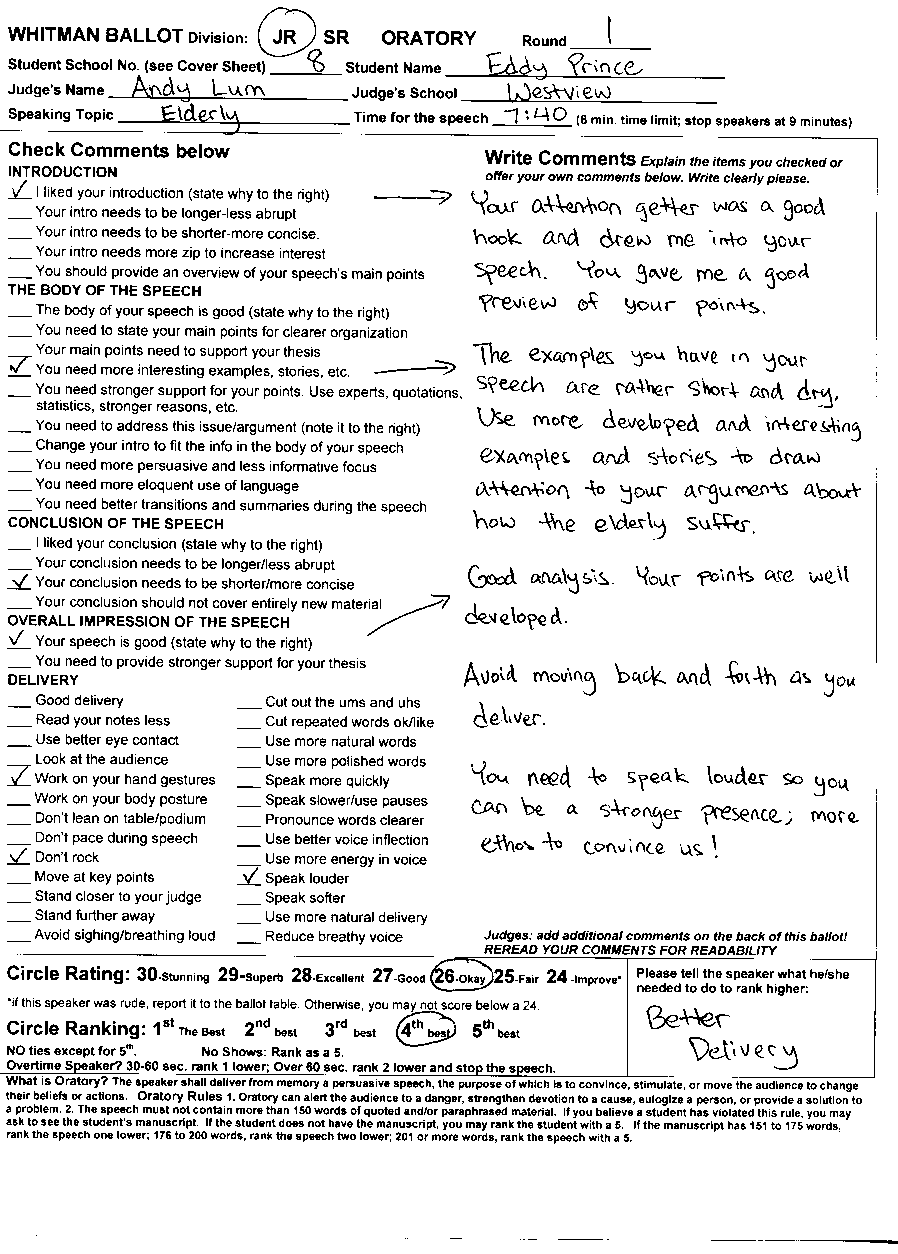 WHITMAN BALLOT Division: JR SR ORATORY Round 1
Student School No. (see Cover Sheet) 8 Student Name Eddy Prince
Judge's Name Andy Lum Judge's School Westview
Speaking Topic Elderly Time for the speech 7:40 (8 min. time limit; stop speakers at 9 minutes)
Check Comments below
INTRODUCTION
✓ I liked your introduction (state why to the right)
___ Your intro needs to be longer-less abrupt
___ Your intro needs to be shorter-more concise.
___ Your intro needs more zip to increase interest
___ You should provide an overview of your speech's main points
THE BODY OF THE SPEECH
___ The body of your speech is good (state why to the right)
___ You need to state your main points for clearer organization
___ Your main points need to support your thesis
✓ You need more interesting examples, stories, etc.
___ You need stronger support for your points. Use experts, quotations,
statistics, stronger reasons, etc.
___ You need to address this issue/argument (note it to the right)
___ Change your intro to fit the info in the body of your speech
___ You need more persuasive and less informative focus
___ You need more eloquent use of language
___ You need better transitions and summaries during the speech
CONCLUSION OF THE SPEECH
___ I liked your conclusion (state why to the right)
___ Your conclusion needs to be longer/less abrupt
✓ Your conclusion needs to be shorter/more concise
___ Your conclusion should not cover entirely new material
OVERALL IMPRESSION OF THE SPEECH
✓ Your speech is good (state why to the right)
___ You need to provide stronger support for your thesis
DELIVERY
___ Good delivery
___ Read your notes less
___ Use better eye contact
___ Look at the audience
✓ Work on your hand gestures
___ Work on your body posture
___ Don't lean on table/podium
___ Don't pace during speech
✓ Don't rock
___ Move at key points
___ Stand closer to your judge
___ Stand further away
___ Avoid sighing/breathing loud
___ Cut out the ums and uhs
___ Cut repeated words ok/like
___ Use more natural words
___ Use more polished words
___ Speak more quickly
___ Speak slower/use pauses
___ Pronounce words clearer
___ Use better voice inflection
___ Use more energy in voice
✓ Speak louder
___ Speak softer
___ Use more natural delivery
___ Reduce breathy voice
Write Comments Explain the items you checked or
offer your own comments below. Write clearly please.
Your attention getter was a good
hook and drew me into your
speech. You gave me a good
preview of your points.
The examples you have in your
speech are rather short and dry.
Use more developed and interesting
examples and stories to draw
attention to your arguments about
how the elderly suffer.
Good analysis. Your points are well
developed.
Avoid moving back and forth as you
deliver.
You need to speak louder so you
can be a stronger presence; more
ethos to convince us!
Judges: add additional comments on the back of this ballot!
REREAD YOUR COMMENTS FOR READABILITY
Circle Rating: 30-Stunning 29-Superb 28-Excellent 27-Good 26-Okay 25-Fair 24-Improve*
*if this speaker was rude, report it to the ballot table. Otherwise, you may not score below a 24.
Circle Ranking: 1st The Best 2nd best 3rd best 4th best 5th best
NO ties except for 5th. No Shows: Rank as a 5.
Overtime Speaker? 30-60 sec. rank 1 lower; Over 60 sec. rank 2 lower and stop the speech.
Please tell the speaker what he/she
needed to do to rank higher:
Better
Delivery
What is Oratory? The speaker shall deliver from memory a persuasive speech, the purpose of which is to convince, stimulate, or move the audience to change
their beliefs or actions. Oratory Rules 1. Oratory can alert the audience to a danger, strengthen devotion to a cause, eulogize a person, or provide a solution to
a problem. 2. The speech must not contain more than 150 words of quoted and/or paraphrased material. If you believe a student has violated this rule, you may
ask to see the student's manuscript. If the student does not have the manuscript, you may rank the student with a 5. If the manuscript has 151 to 175 words,
rank the speech one lower; 176 to 200 words, rank the speech two lower; 201 or more words, rank the speech with a 5.